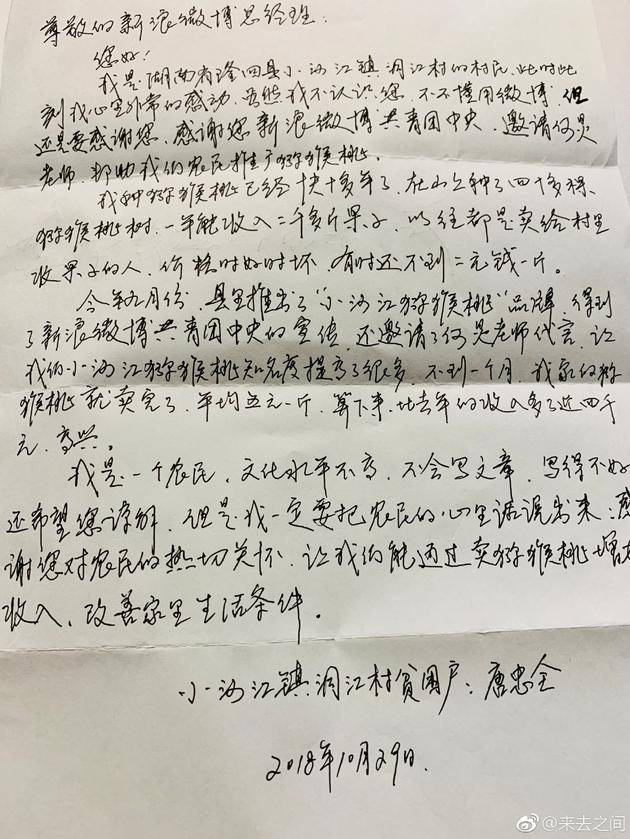 尊敬的新浪微博总经理:
您好!
我是湖南省隆回县小沙江镇洞江村的村民,此时此
刻我心里非常的感动,虽然我不认识您,不懂用微博,但
还是要感谢您,感谢您新浪微博共青团中央,邀请何炅
老师,帮助我们农民推广猕猴桃。
我种猕猴桃已经快十多年了,在山上种了四十多棵
猕猴桃树,一年能收入二千多斤果子,以往都是卖给村里
收果子的人,价格时好时坏,有时还不到二元钱一斤。
今年九月份,县里推出了“小沙江猕猴桃”品牌,得到
了新浪微博共青团中央的宣传,还邀请了何炅老师代言,让
我们小沙江猕猴桃知名度提高了很多,不到一个月,我家的猕
猴桃就卖完了,平均五元一斤,算下来,比去年的收入多了近四千
元,高兴。
我是一个农民,文化水平不高,不会写文章,写得不好
还希望您谅解,但是我一定要把农民的心里话说出来:感
谢您对农民的热切关怀,让我们能通过卖猕猴桃增加
收入,改善家里生活条件。
小沙江镇洞江村贫困户:唐忠全
2018年10月29日.
@来去之间